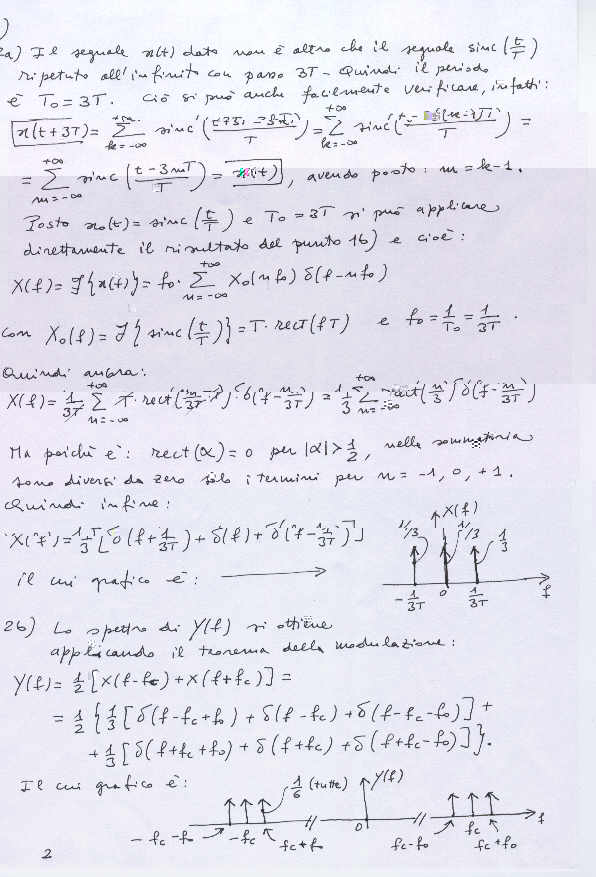 2a) Il segnale x(t) dato non è altro che il segnale sinc(t/T)
ripetuto all'infinito con passo 3T - Quindi il periodo
è T₀ = 3T. Ciò si può anche facilmente verificare, infatti:
x(t+3T) = ∑_{k=-∞}^{+∞} sinc((t+3T-3kT)/T) = ∑_{k=-∞}^{+∞} sinc((t-3(k-1)T)/T) =
= ∑_{m=-∞}^{+∞} sinc((t-3mT)/T) = x(t), avendo posto: m = k-1.
Posto x₀(t) = sinc(t/T) e T₀ = 3T si può applicare
direttamente il risultato del punto 1b) e cioè:
X(f) = F{x(t)} = f₀ · ∑_{n=-∞}^{+∞} X₀(nf₀) δ(f-nf₀)
con X₀(f) = F{sinc(t/T)} = T · rect(fT) e f₀ = 1/T₀ = 1/3T.
Quindi ancora:
X(f) = 1/3T ∑_{n=-∞}^{+∞} T · rect(n/3T · T) · δ(f - n/3T) = 1/3 ∑_{n=-∞}^{+∞} rect(n/3) δ(f - n/3T)
Ma poichè è: rect(α) = 0 per |α| > 1/2, nella sommatoria
sono diversi da zero solo i termini per n = -1, 0, +1.
Quindi infine:
X(f) = 1/3 [δ(f + 1/3T) + δ(f) + δ(f - 1/3T)]
il cui grafico è:
X(f)
1/3 1/3 1/3
-1/3T 0 1/3T f
2b) Lo spettro di Y(f) si ottiene
applicando il teorema della modulazione:
Y(f) = 1/2 [X(f-fc) + X(f+fc)] =
= 1/2 {1/3 [δ(f-fc+f₀) + δ(f-fc) + δ(f-fc-f₀)] +
+ 1/3 [δ(f+fc+f₀) + δ(f+fc) + δ(f+fc-f₀)]}.
Il cui grafico è:
1/6 (tutte) Y(f)
-fc-f₀ -fc fc+f₀ 0 fc-f₀ fc fc+f₀ f
2